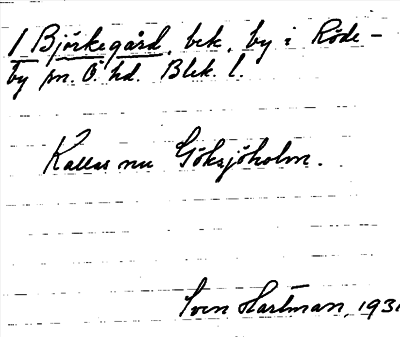 1 Björkegård, bek. by i Röde-
by sn. Ö. hd. Blek. l.
Kallas nu Göksjöholm.
Sven Hartman, 193